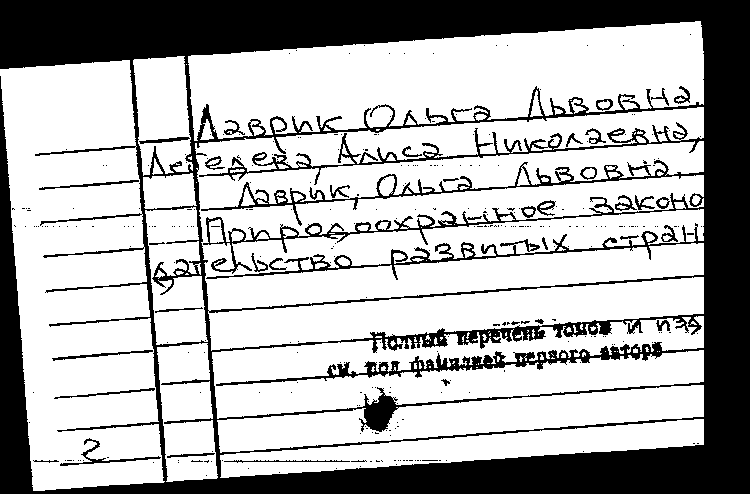 Лаврик Ольга Львовна.
Лебедева, Алиса Николаевна,
Лаврик, Ольга Львовна.
Природоохранное законо
дательство развитых стран
Полный перечень томов и изд
см. под фамилией первого автора
2